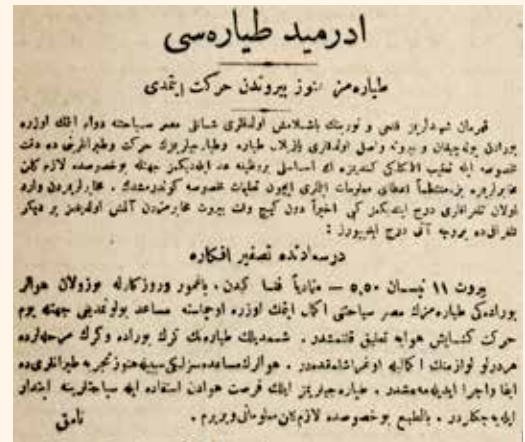 ادرميد طياره‌سى
طياره‌مز هنوز بيروتدن حركت ايتمدى
قهرمان شهدامز فتحى و نورينك باشلامش اولدقلرى شانلى مصر سياحتنه دوام ايتمك اوزره
بورادن يوله چيقان و بيروته واصل اولدقلرى يازيلان طياره وطياره‌جيلريمزك حركت وطيرانلرينى ده دقت
مخصوصه ايله تعقيب ايتمكلكى كنديمزه اك اساسلى بر وظيفه عد ايتديكمز جهتله بو خصوصده لازم كلن
مخابرلريمزه بزه منتظماً اعطاى معلومات ايتملرى ايچون تعليمات مخصوصه كوندرمشدك . مخابرلريمزدن وارد
اولان تلغرافلرى درج ايتديكمز كبى اخيراً دون كيج وقت بيروت مخابرمزدن آلمش اولديغمز بر ديكر
تلغرافى ده بروجه آتى درج ايدييورز :
درسعادتده تصفير افكاره
بيروت ١١ نيسان ٥,٥٠ — متمادياً فنا كيدن ، ياغمور وروزكارله بوزولان هوالر
بوراده‌كى طياره‌مزك مصر سياحتنى اكمال ايتمك اوزره اوچماسنه مساعد بولونمديغى جهتله يوم
حركت كشايش هوايه تعليق قلنمشدر . شمديلك طياره‌نك ترك بوراده وكرك مرحله‌لرده
هر درلو لوازمنك اكمالنه اوغراشلمقده‌در . هوالرك مساعده‌سزلكى سببيله هنوز تجربه طيرانلرى ده
ايفا واجرا ايديله‌مه‌مشدر . طياره‌جيلريمز ايلك فرصت هوادن استفاده ايله سياحتلرينه ابتدار
ايده‌جكلردر . بالطبع بو خصوصده لازم كلن معلوماتى ويريرم .
نامق